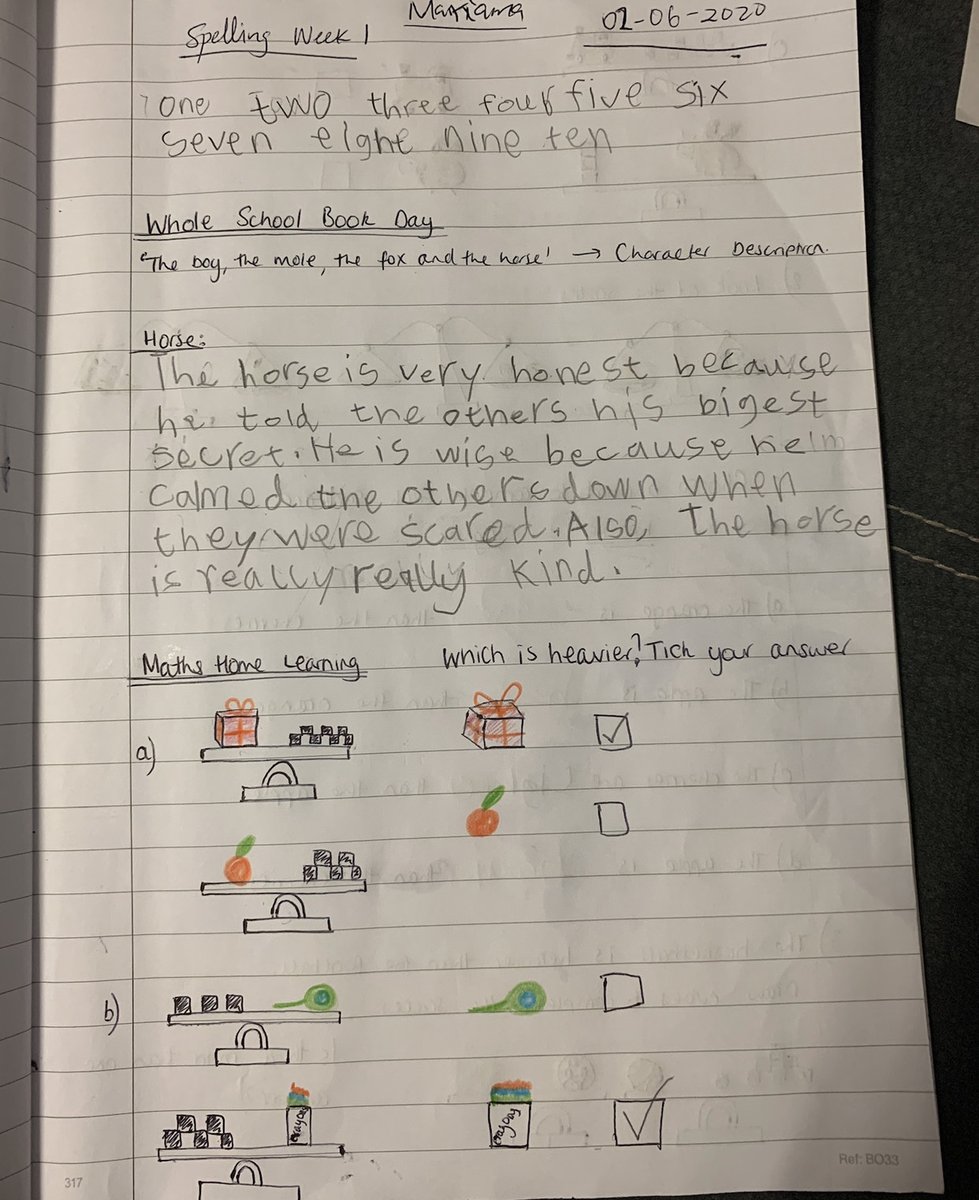 Mariama
02-06-2020
Spelling Week 1
one two three four five six
seven eight nine ten
Whole School Book Day
'The boy, the mole, the fox and the horse' → Character Description.
Horse:
The horse is very honest because
he told the others his bigest
secret. He is wise because he
calmed the others down when
they were scared. Also, the horse
is really really kind.
Maths Home Learning
Which is heavier? Tick your answer
a)
b)
Crayons
Crayons
317
Ref: BO33